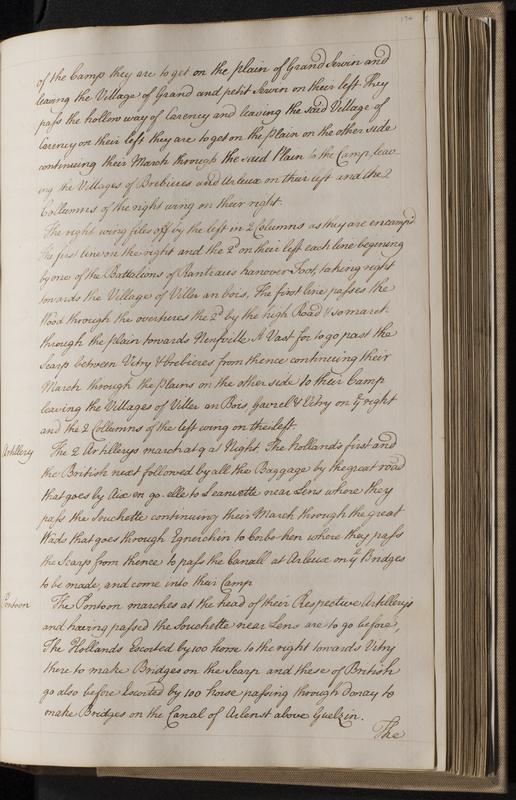 of the Camp they are to get on the plain of Grand Servin and
leaving the Village of Grand and petit Servin on their left They
pass the hollow way of Carency and leaving the said Village of
Carency on their left they are to get on the plain on the other side
continuing their March through the said Plain to the Camp, leav-
ing the Villages of Brebieres and Arleux on their left and the 2
Collumns of the right wing on their right.
The right wing files off by the left in 2 Columns as they are encamp'd
The first line on the right and the 2d on their left each line begining
by one of the Battalions of Rantzaus hanover Foot, taking right
towards the Village of Viller au bois, The first line passes the
Wood through the overtures the 2d by the high Road & so march
through the plain towards Neufville A Vast for to go past the
Scarp between Vitry & brebieres from thence continuing their
March through the plains on the other side to their Camp
leaving the Villages of Viller au Bois, Gavrel & Vitry on ye right
and the 2 Collumns of the left wing on their left.
Artillery
The 2 Artillerys march at 9 at Night, The hollands first and
the British next followed by all the Baggage by the great road
that goes by Aix en go-elle to Leauvette near Lens where they
pass the Souchette continuing their March through the great
Wads that goes through Equerchin to where they pass
the Scarp from thence to pass the Canall at Arleux on ye Bridges
to be made, and come into their Camp
Pontoon
The Pontoon marches at the head of their Respective Artillerys
and having passed the Souchette near Lens are to go before,
The Hollands Escorted by 100 horse to the right towards Vitry
there to make Bridges on the Scarp and these of British
go also before Escorted by 100 horse passing through Doway to
make Bridges on the Canal of above Guelzin.
The